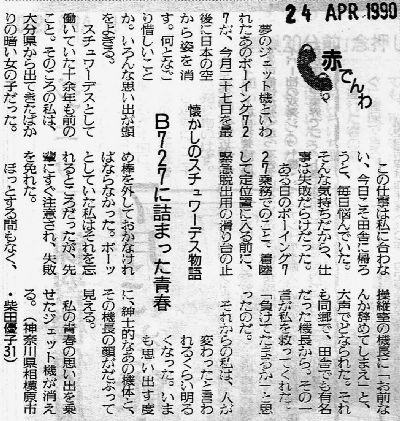 24 APR 1990
赤でんわ
懐かしのスチュワーデス物語
B727に詰まった青春
夢のジェット機といわ
れたあのボーイング72
7が、今月二十七日を最
後に日本の空
から姿を消
す。何となご
り惜しいこと
か。いろんな思い出が頭
をよぎる。
スチュワーデスとして
働いていた十余年も前の
こと。そのころの私は、
大分県から出てきたばか
りの暗い女の子だった。
この仕事は私に合わな
い、今日こそ田舎に帰ろ
うと、毎日悩んでいた。
そんな気持ちだから、仕
事は失敗だらけだった。
ある日のボーイング7
27乗務でのこと。着陸
して定位置に入る前に、
緊急脱出用の滑り台の止
め棒を外しておかなけれ
ばならなかった。ボーッ
としていた私はそれを忘
れるところだったが、先
輩にすぐ注意され、失敗
を免れた。
ほっとする間もなく、
操縦室の機長に「お前な
んか辞めてしまえ」と、
大声でどなられた。それ
も同郷で、田舎でも有名
だった機長から。その一
言が私を救ってくれた。
「負けてたまるか」と思
ったのだ。
それからの私は、人が
変わったと言わ
れるくらい明る
くなった。いま
も思い出す度
に、紳士的なあの機体と、
その機長の顔がだぶって
見える。
私の青春の思い出を乗
せたジェット機が消え
る。（神奈川県相模原市
・柴田優子31）